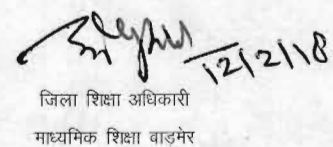 12/2/18
जिला शिक्षा अधिकारी
माध्यमिक शिक्षा वाड़मेर